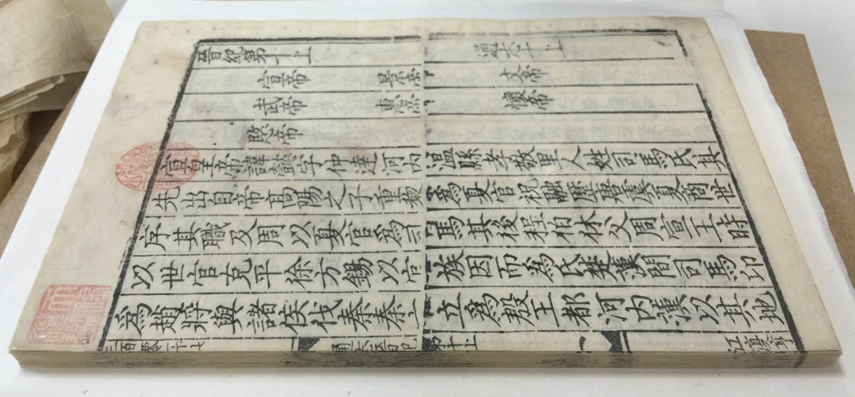 晉紀第十上 通志十上
宣帝 景帝 文帝
武帝 惠帝 懷帝
愍帝
宣皇帝諱懿字仲達河內溫縣孝敬里人姓司馬氏其
先出自帝高陽之子重黎爲夏官祝融歷唐虞夏商世
序其職及周以夏官爲司馬其後程柏休父周宣王時
以世官克平徐方錫以官族因而爲氏楚漢間司馬卬
爲趙將與諸侯伐秦秦亡立爲殷王都河內漢以其地
第十上